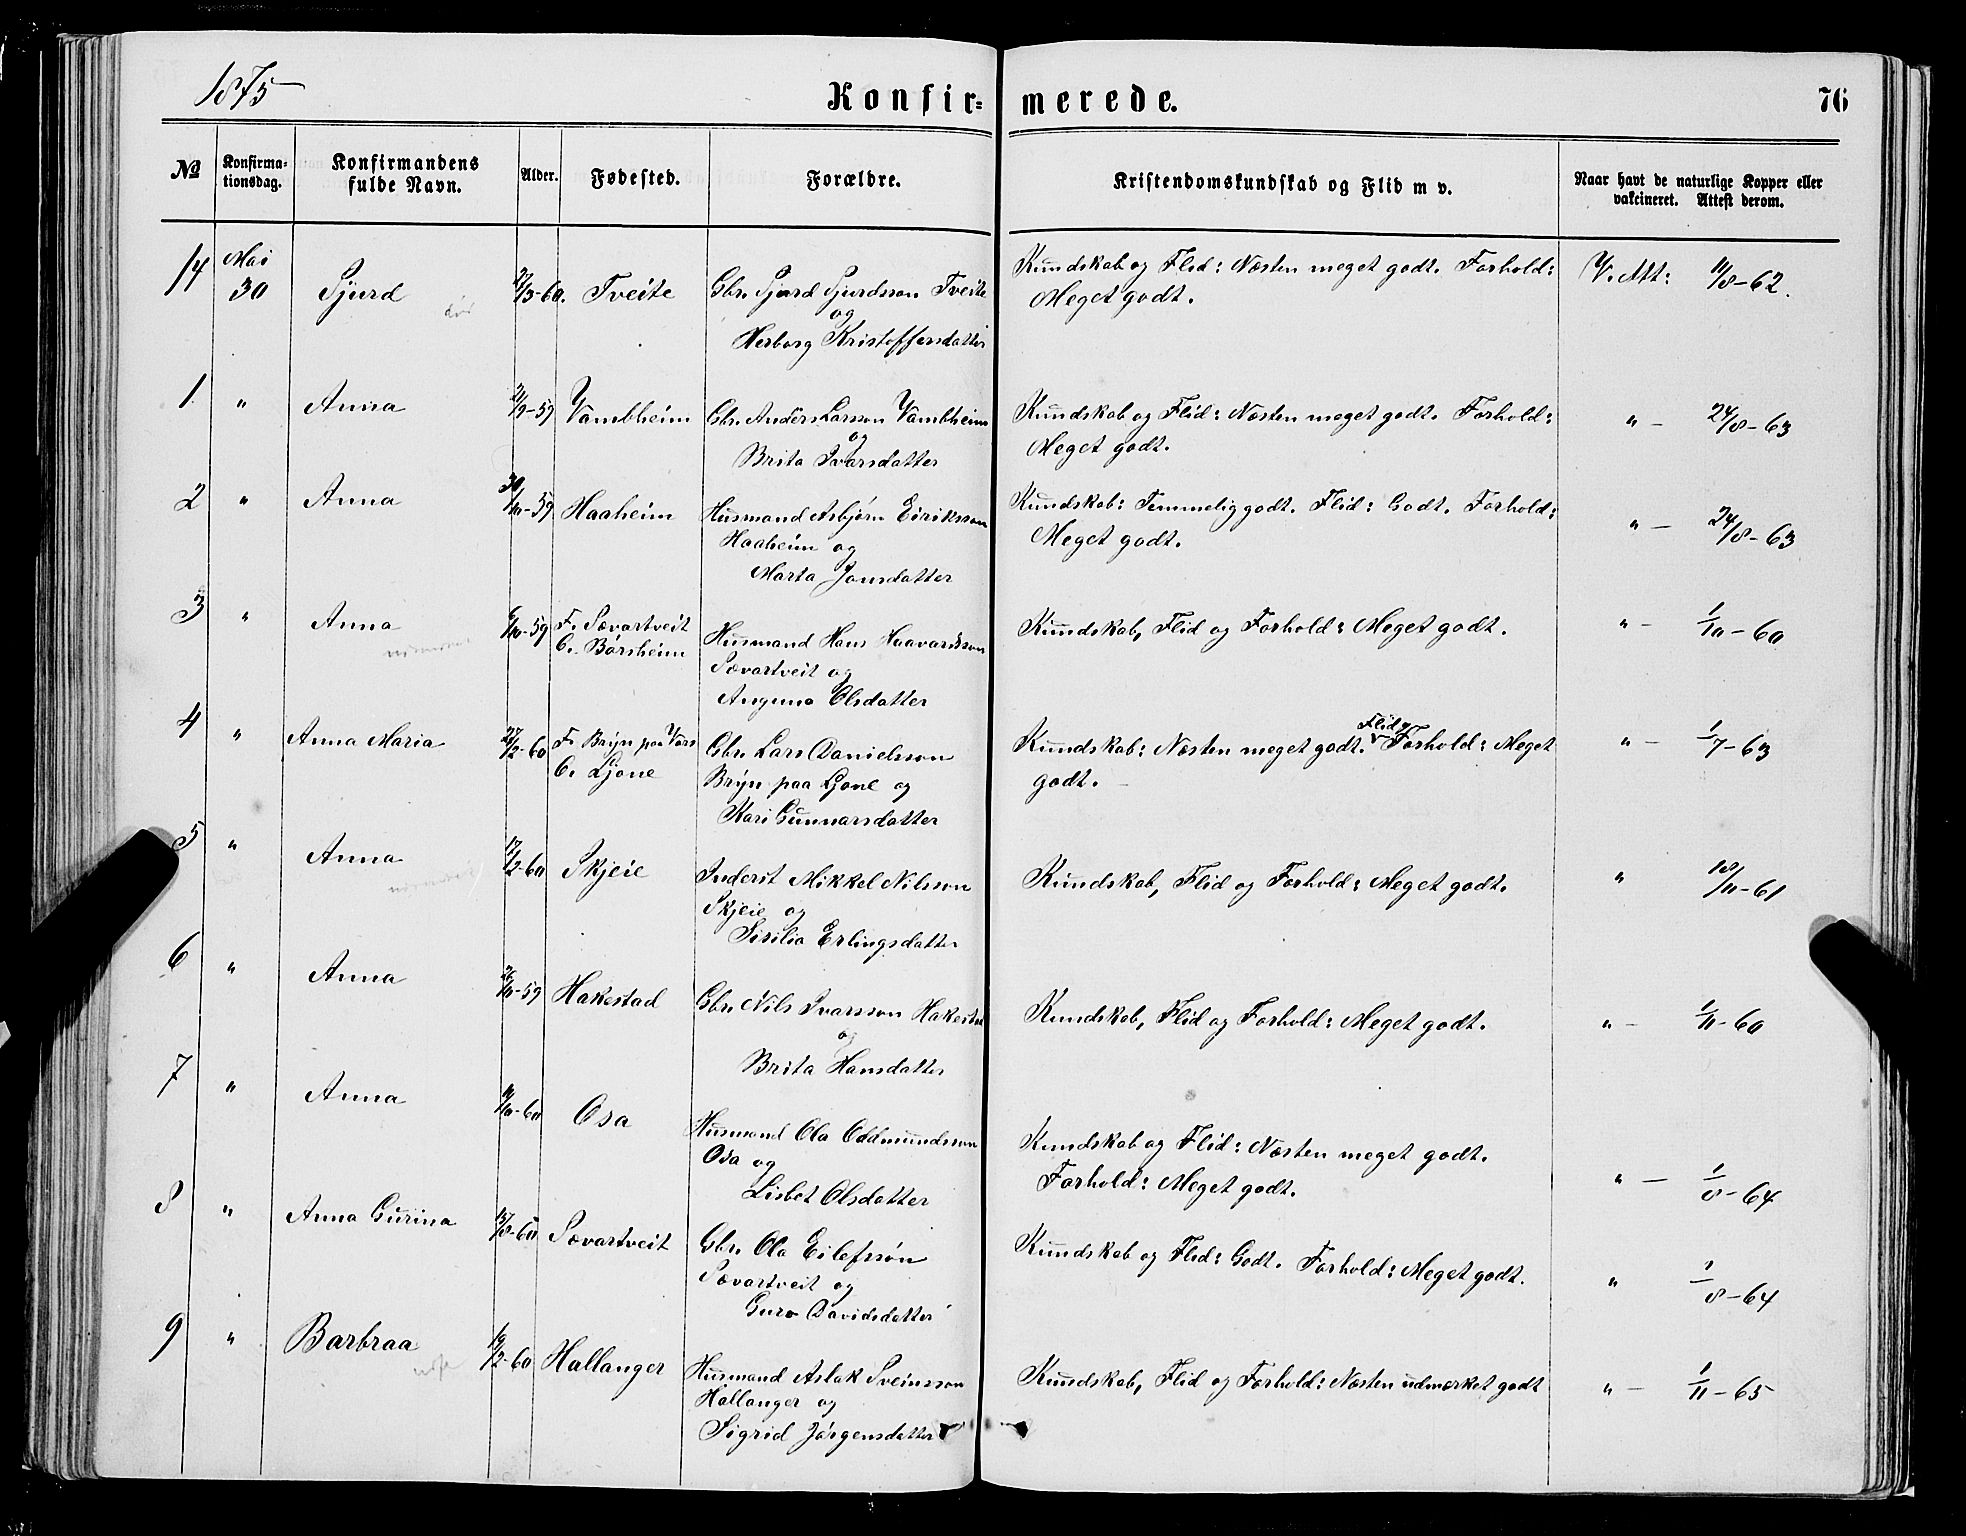 1875
Konfir=
merede.
76
No
Konfirma=
tionsdag.
Konfirmandens
fulde Navn.
Alder.
Fødested.
Forældre.
Kristendomskundskab og Flid m v.
Naar havt de naturlige Kopper eller
vakcineret. Attest derom.
14 Mai 30 Sjurd /3-60. Tveite Gbr. Sjurd Sjurdsson Tveite
og
Herborg Kristoffersdatter
Kundskab og Flid: Næsten meget godt. Forhold: V. Att: 11/8-62.
Meget godt.
1. " Anna /9-59 Vambheim Gbr. Anders Larsson Vambheim
og
Brita Ivarsdatter
Kundskab og Flid: Næsten meget godt. Forhold: " — 24/8-63
Meget godt.
2 " Anna 30/10-59 Haaheim Husmand Asbjørn Eiriksson
Haaheim og
Marta Jonsdatter
Kundskab: Temmelig godt. Flid: Godt. Forhold: " — 24/8-63
Meget godt.
3 " Anna 6/10-59 F. Sævartveit
C. Børsheim
Husmand Hans Haavardsson
Sævartveit og
Olsdatter
Kundskab, Flid og Forhold: Meget godt. " — 1/10-60
4 " Anna Maria 27/2-60 F. Bryn paa Vors
C. Ljone
Gbr. Lars Danielsson
Bryn paa Ljone og
Kari Gunnarsdatter
Flid og
Kundskab: Næsten meget godt. Forhold: Meget " — 1/7-63
godt. —
5 " Anna 17/2-60 Skjeie Inderst Mikkel Nilsson
Skjeie og
Sirilia Erlingsdatter
Kundskab, Flid og Forhold: Meget godt. " 18/11-61
6 " Anna 26/10-59 Hakestad Gbr. Nils Ivarsson Hakestad
og
Brita Hansdatter
Kundskab, Flid og Forhold: Meget godt. " — 1/11-60
7 " Anna /10-60 Osa Husmand Ola Oddmundsson
Osa og
Lisbet Olsdatter
Kundskab og Flid: Næsten meget godt.
Forhold: Meget godt. " — 1/8-64
8 " Anna Gurina 15/8-60 Sævartveit Gbr. Ola Eilefssøn
Sævartveit og
Guro Davidsdatter
Kundskab og Flid: Godt. Forhold: Meget godt. " 1/8-64
9 " Barbraa 19/2-60 Hallanger Husmand Aslak Sveinsson
Hallanger og
Sigrid Jørgensdatter
Kundskab, Flid og Forhold: Næsten udmærket godt " — 1/11-65